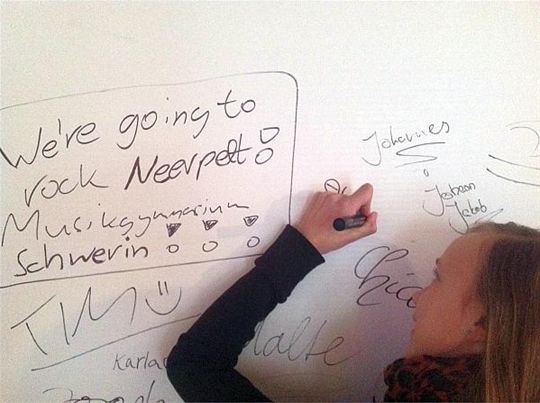 We're going to
rock Neerpelt!
Musikgymnasium
Schwerin !!!
Johannes
Jakob
TIM
Karla
Malte